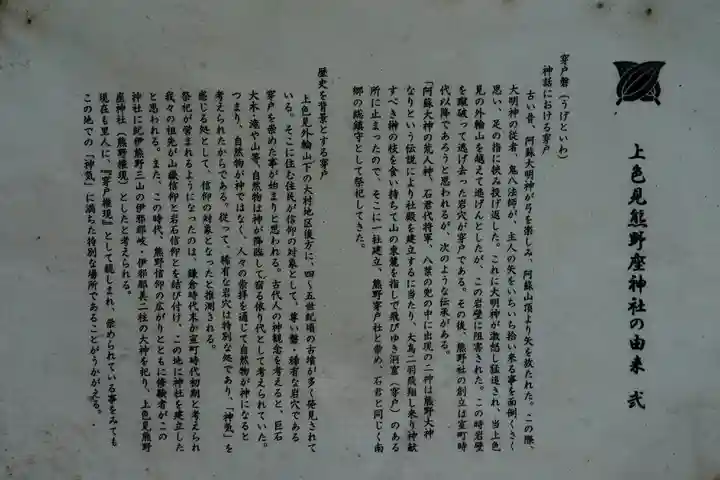 上色見熊野座神社の由来 弐
穿戸磐（うげといわ）
神話における穿戸
古い昔 阿蘇大明神が弓を楽しみ、阿蘇山頂より矢を放たれた。この際、
大明神の従者、鬼八法師が、主人の矢をいちいち拾い来る事を面倒くさく
思い、足の指に挟み投げ返した。これに大明神が激怒し猛追され、当上色
見の外輪山を越えて逃げんとしたが、この岩壁に阻害された。この時岩壁
を蹴破って逃げ去った岩穴が穿戸である。その後、熊野社の創立は室町時
代以降であろうと思われるが、次のような伝承がある。
「阿蘇大神の荒人神、石君代将軍、八葉の兜の中に出現の二神は熊野大神
なりという伝説により社殿を建立するに当たり、大烏二羽飛翔し来り神献
すべき榊の枝を食い持ちて山の東麓を指して飛びゆき洞窟（穿戸）のある
所に止まったので、そこに一社建立、熊野穿戸社と崇め、石君と同じく南
郷の総鎮守として祭祀してきた。
歴史を背景とする穿戸
上色見外輪山下の大村地区後方に、四～五世紀頃の古墳が多く発見されて
いる。そこに住む住民が信仰の対象として、尊い磐、稀有な岩穴である
穿戸を崇めた事が始まりと思われる。古代人の神観念を考えると、巨石
大木、滝や山等、自然物は神が降臨して宿る依り代として考えられていた。
つまり、自然物が神ではなく、人々の崇拝を通じて自然物が神になると
考えられたからである。従って、稀有な岩穴は特別な処であり、「神気」を
感じる処として、信仰の対象となったと推測される。
祭祀が営まれるようになったのは、鎌倉時代末か室町時代初期と考えられ
我々の祖先が山嶽信仰と岩石信仰とを結び付け、この地に神社を建立した
と思われる。また、この時代、熊野信仰の広がりとともに修験者がこの
神社に紀伊熊野三山の伊邪那岐、伊邪那美二柱の大神を祀り、上色見熊野
座神社（熊野権現）としたと考えられる。
現在も里人に、『穿戸権現』として親しまれ、崇められている事をみても
この地での「神気」に満ちた特別な場所であることがうかがえる。